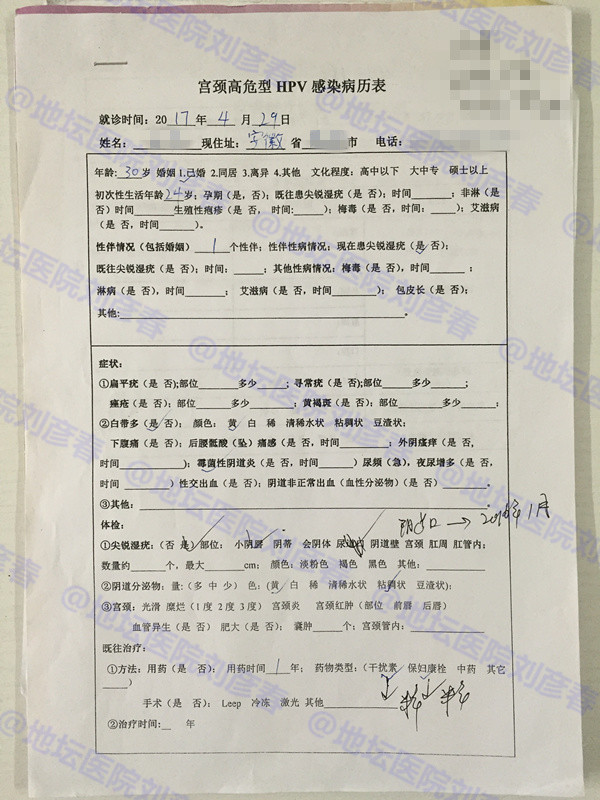 宫颈高危型 HPV 感染病历表
就诊时间：2017 年 4 月 29 日
姓名： 现住址：安徽 省 市 电话：
年龄：30岁 婚姻 1.已婚 2.同居 3.离异 4.其他 文化程度：高中以下 大中专 硕士以上
初次性生活年龄24岁；孕期（是，否）；既往患尖锐湿疣（是 否）；时间______；非淋（是
否）时间______生殖性疱疹（是 否， 时间:_____）；梅毒（是 否，时间：_____）；艾滋病
（是 否，时间______）。
性伴情况（包括婚姻）1个性伴；性伴性病情况；现在患尖锐湿疣（是 否）；
既往尖锐湿疣（是 否）；时间：_____；其他性病情况：梅毒（是 否），时间______；
淋病（是 否），时间______； 艾滋病（是 否，时间______）； 包皮长（是 否）；
其他:______。
症状：
①扁平疣（是 否）;部位______多少_____；寻常疣（是 否）;部位______多少______；
痤疮（是 否）；部位______多少______；黄褐斑（是 否）；部位______多少______；
②白带多（是 否）； 颜色： 黄 白 稀 清稀水状 粘稠状 豆渣状；
下腹痛（是 否）；后腰骶酸（坠）痛感（是 否，时间______；外阴瘙痒（是 否，
时间______）；霉菌性阴道炎（是 否，时间______）尿频（急），夜尿增多（是 否，
时间______）性交出血（是 否）；阴道非正常出血（血性分泌物）（是 否）______。
③其他：______
阴道口 → 2016年1月
体检：
①尖锐湿疣：（否 是）部位： 小阴唇 阴蒂 会阴体 尿道口 阴道壁 宫颈 肛周 肛管内；
数量约______个，最大______cm； 颜色：淡粉色 褐色 黑色 其他：______
②阴道分泌物：量：（多 中 少） 色：（黄 白 稀 清稀水状 粘稠状 豆渣状）；
③宫颈：光滑 糜烂（1 度 2 度 3 度） 宫颈炎 宫颈红肿（部位 前唇 后唇）
血管异生（是 否） 肥大（是 否）； 囊肿_____个；宫颈管内：______
既往治疗：
①方法：用药（是 否）； 用药时间 1 年； 药物类型：（干扰素 保妇康栓 中药 其它
____）
手术（是 否）： Leep 冷冻 激光 其他______
②治疗时间:__ 年
@地坛医院刘彦春